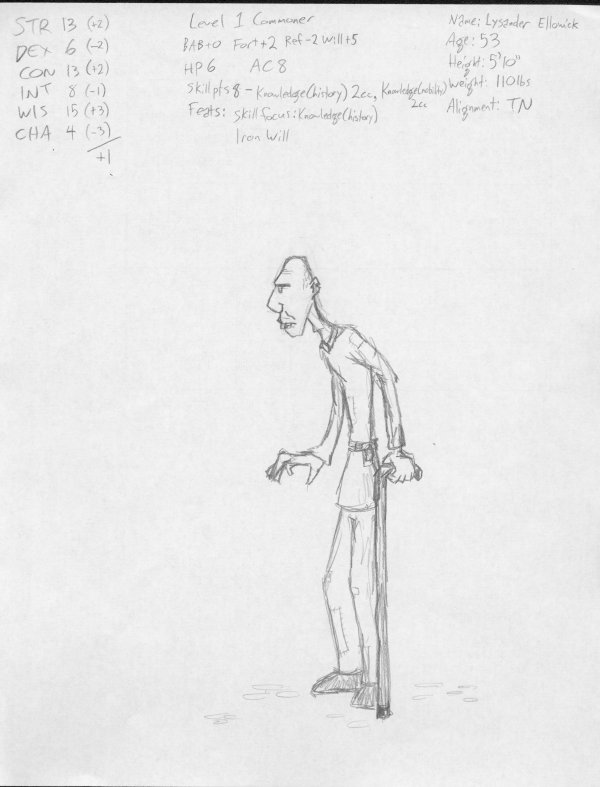 STR 13 (+2)
DEX 6 (-2)
CON 13 (+2)
INT 8 (-1)
WIS 15 (+3)
CHA 4 (-3)
+1
Level 1 Commoner
BAB+0 Fort+2 Ref-2 Will+5
HP 6 AC 8
Skill pts 8 - Knowledge(history) 2cc, Knowledge(nobility) 2cc
Feats: Skill focus: Knowledge(history)
Iron Will
Name: Lysander Ellowick
Age: 53
Height: 5'10"
Weight: 110lbs
Alignment: TN